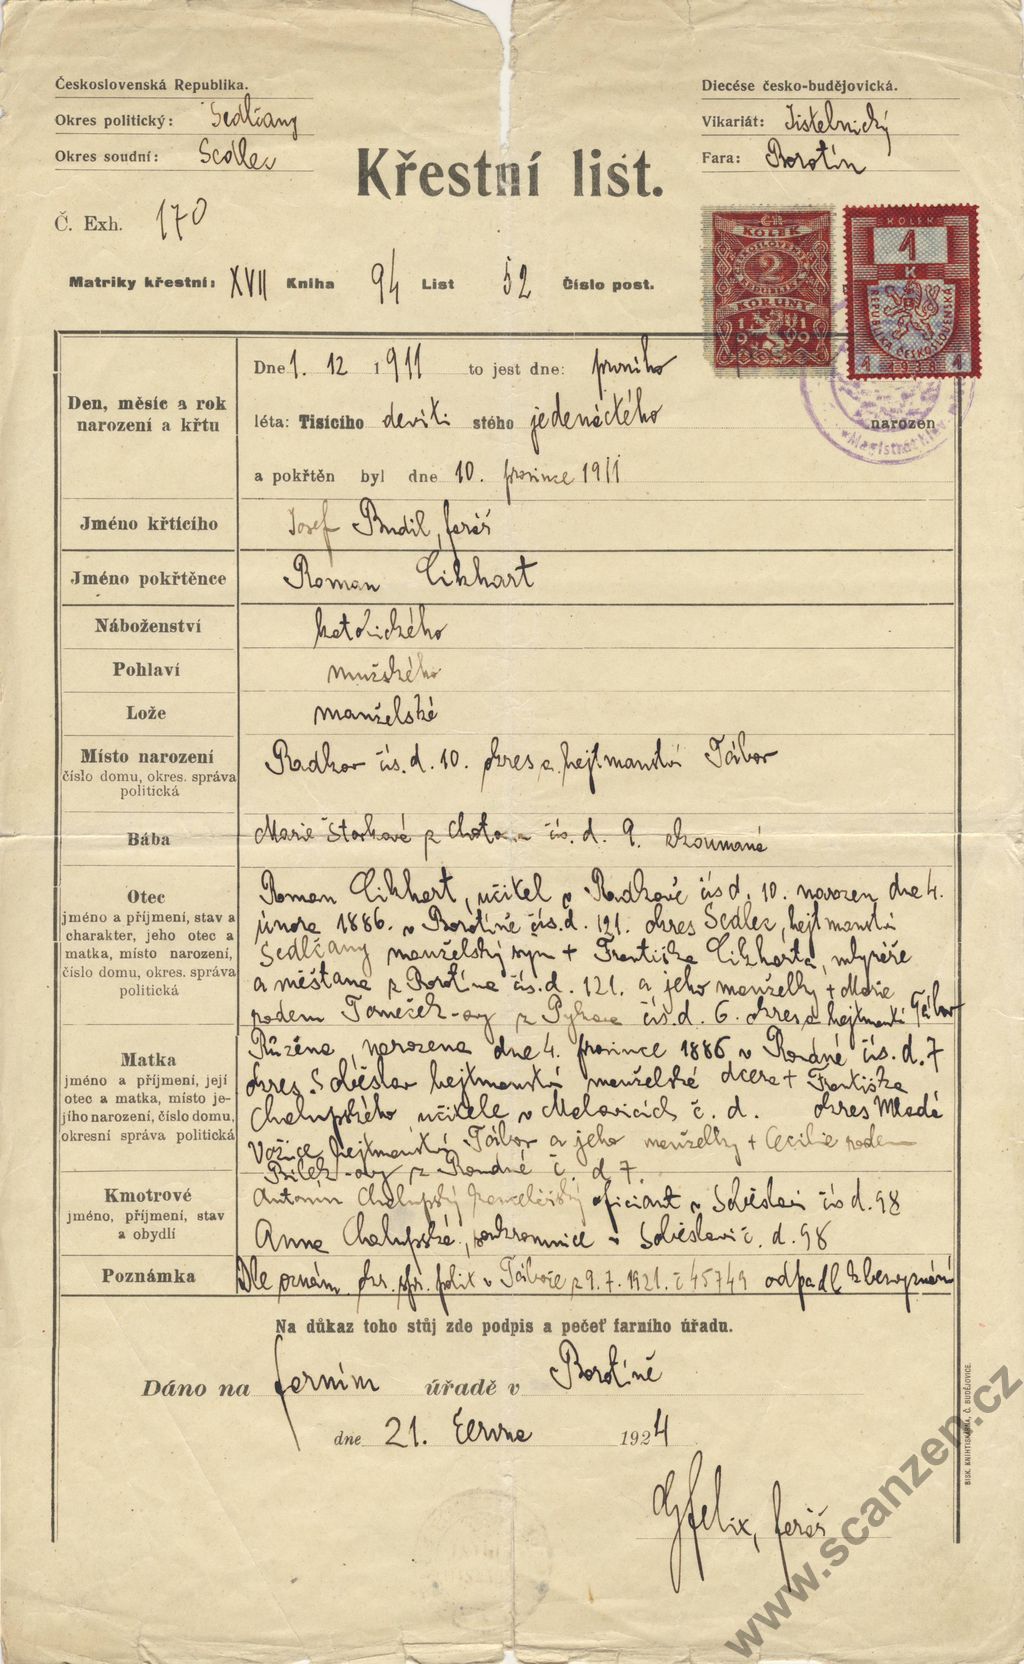 Československá Republika.
Okres politický: Sedlčany
Okres soudní: Sedlec
Diecése česko-budějovická.
Vikariát: Jistebnický
Fara: Borotín
Křestní list.
Č. Exh. 170
Matriky křestní: XVII Kniha 94 List 52 Číslo post.
ČR
KOLEK
ČESKOSLOVENSKÁ
REPUBLIKA
2
KORUNY
1919
KOLEK
1
K
REPUBLIKA ČESKOSLOVENSKÁ
1 1938 1
Magistrát
Den, měsíc a rok
narození a křtu
Dne 1. 12 1911 to jest dne: prvního
léta: Tisícího devíti stého jedenáctého narozen
a pokřtěn byl dne 10. prosince 1911
Jméno křtícího
Josef Budil, farář
Jméno pokřtěnce
Roman Cikhart
Náboženství
katolického
Pohlaví
mužského
Lože
manželské
Místo narození
číslo domu, okres. správa
politická
Radkov čís. d. 10. okres a hejtmanství Tábor
Bába
Marie čís. d. 9. zkoumaná
Otec
jméno a příjmení, stav a
charakter, jeho otec a
matka, místo narození,
číslo domu, okres. správa
politická
Roman Cikhart, učitel v Radkově čís d. 10. narozen dne 4.
února 1886. v Borotíně čís. d. 121. okres Sedlec, hejtmanství
Sedlčany manželský syn + Františka Cikharta, mlynáře
a měšťana z Borotína čís. d. 121. a jeho manželky + Marie
rodem Tomeček-ovy z čís d. 6. okres a hejtmanství Tábor
Matka
jméno a příjmení, její
otec a matka, místo je-
jího narození, číslo domu,
okresní správa politická
Růžena, narozena dne 4. prosince 1886 v Roudné čís. d. 7
okres Soběslav hejtmanství manželská dcera + Františka
Chalupského učitele v Malovicích č. d. okres Mladá
Vožice hejtmanství Tábor a jeho manželky + Cecilie rodem
Bílek-ovy z Roudné č d 7.
Kmotrové
jméno, příjmení, stav
a obydlí
Antonín Chalupský kancelářský oficiant v Soběslavi čís d. 98
Anna Chalupská, soukromnice v Soběslavi č. d. 98
Poznámka
Dle oznám. okr. správ. polit v Táboře z 9. 7. 1921. č 45749 odpadl k bezvyznání
Na důkaz toho stůj zde podpis a pečeť farního úřadu.
Dáno na farním úřadě v Borotíně
dne 21. června 1924
farář
BISK. KNIHTISKÁRNA, Č. BUDĚJOVICE.
www.scanzen.cz